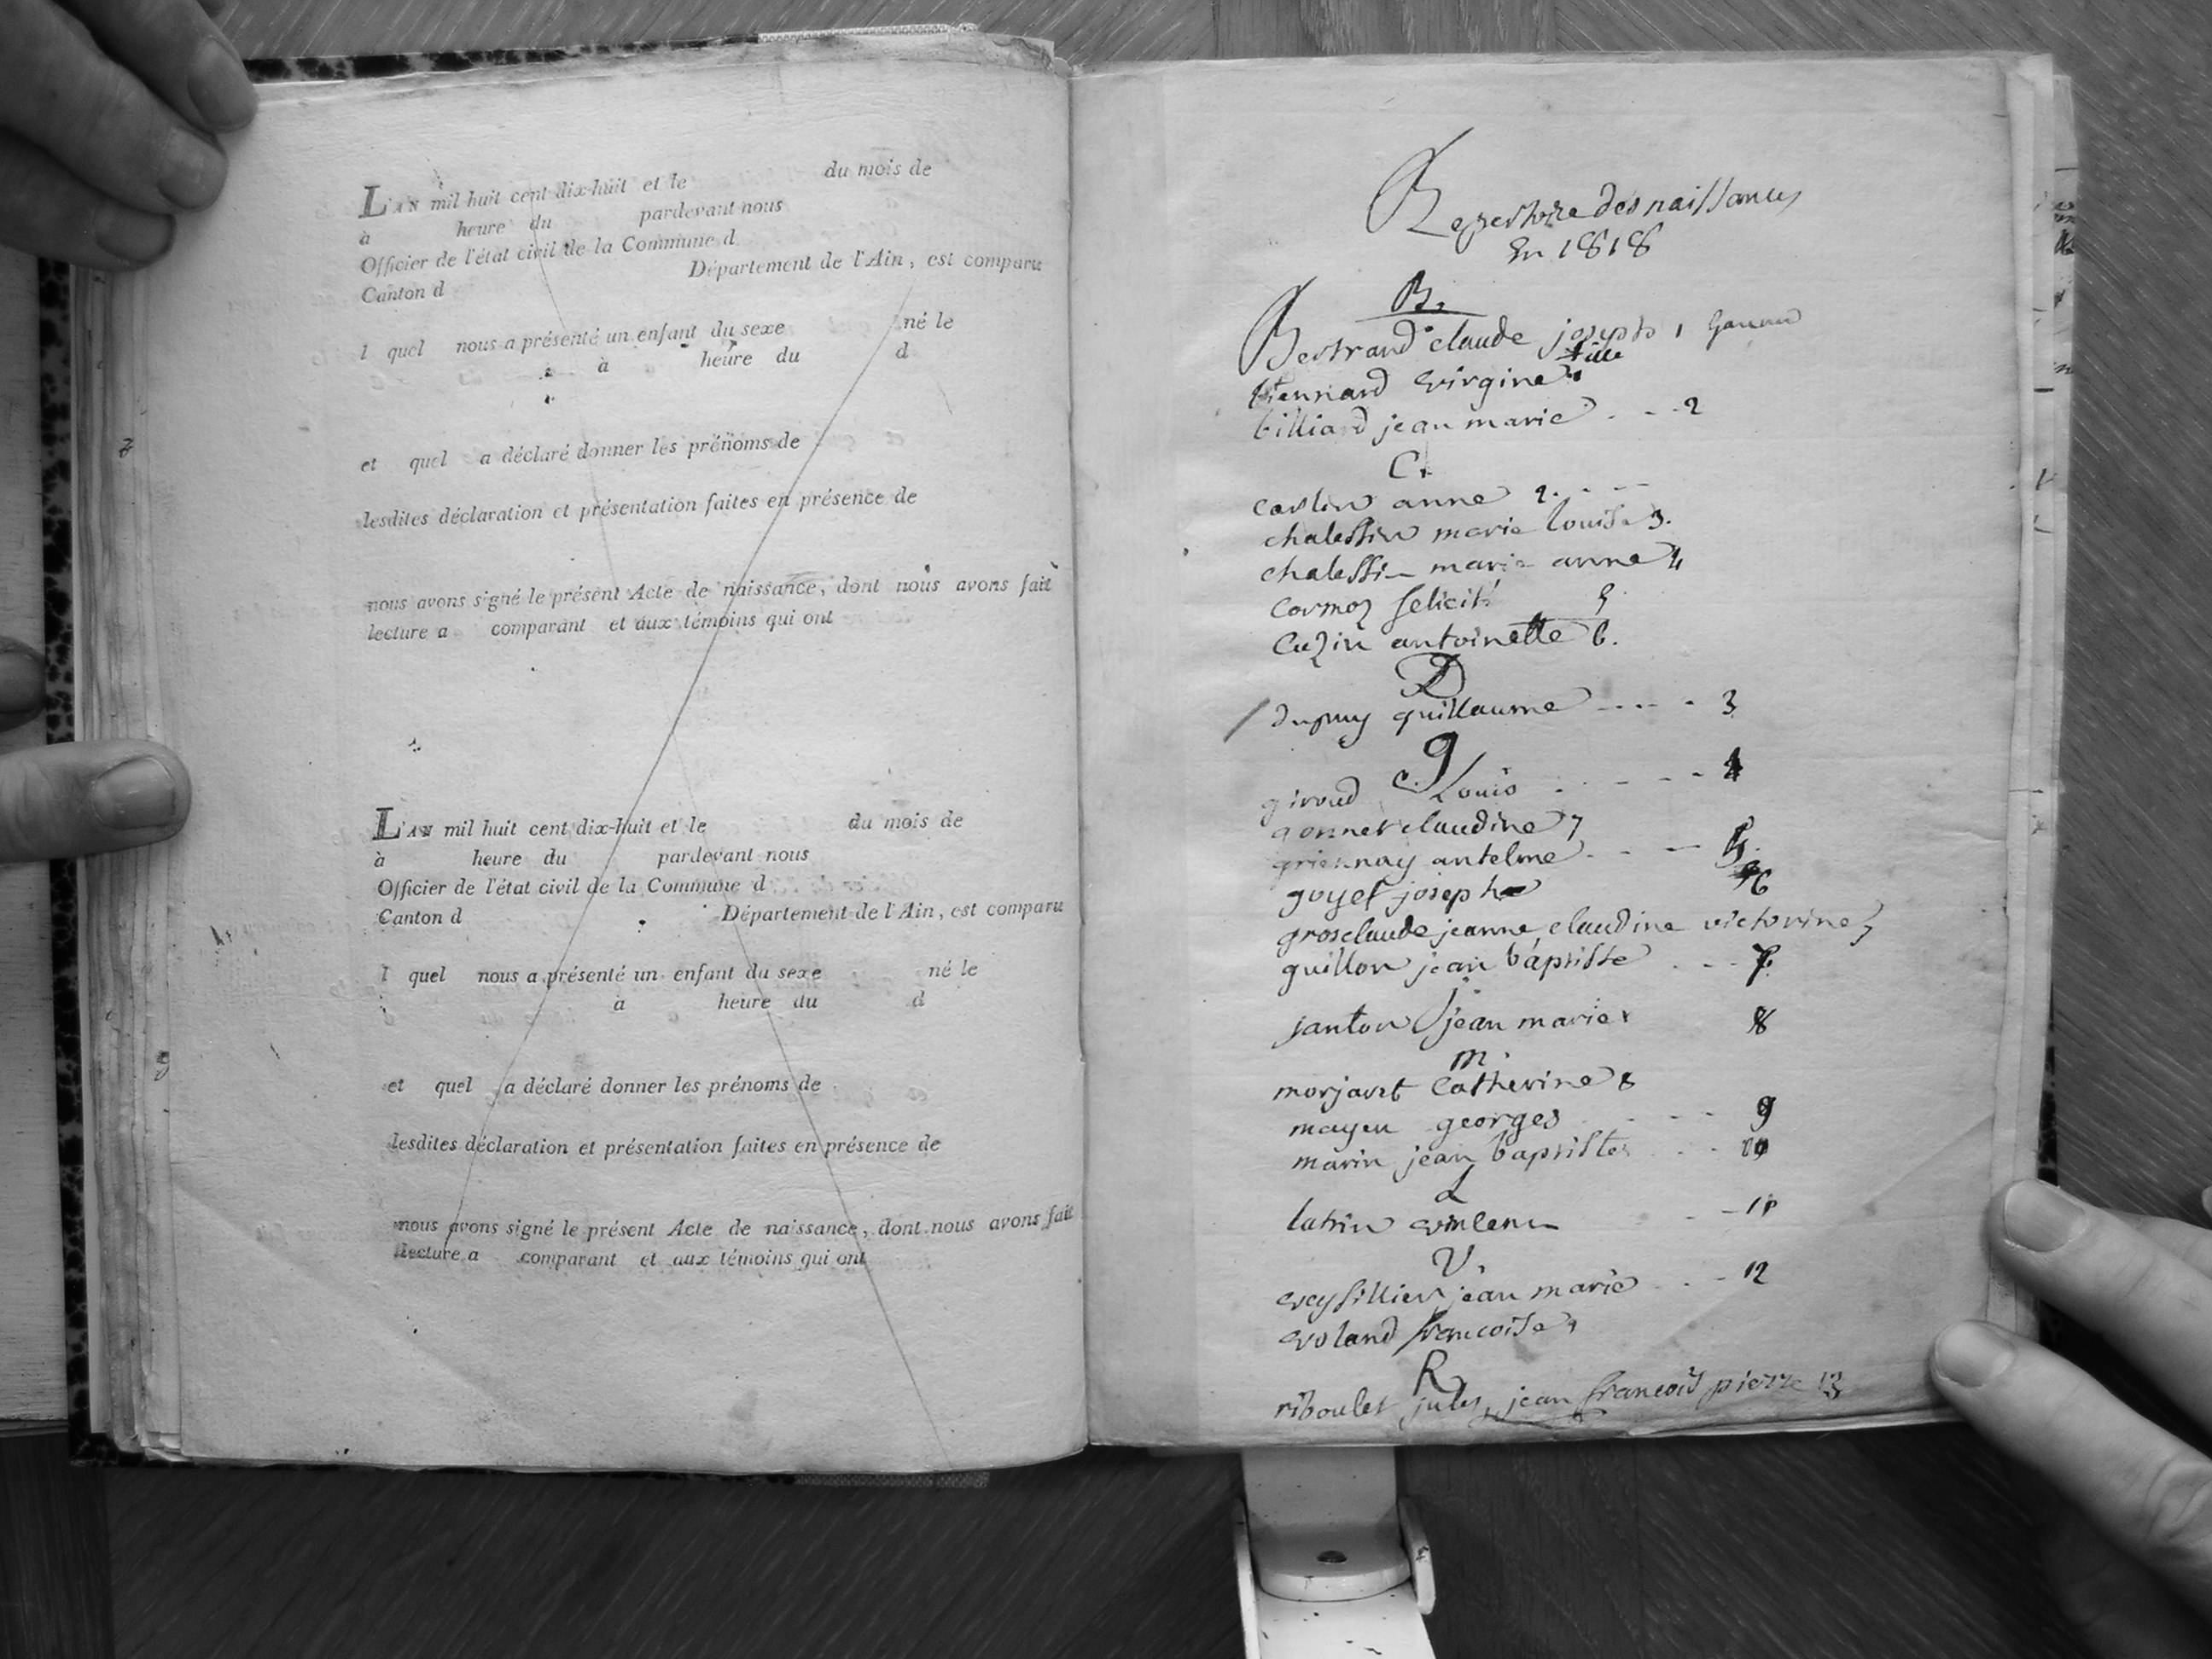 L'AN mil huit cent dix-huit et le du mois de
à heure du pardevant nous
Officier de l'état civil de la Commune d
Canton d Département de l'Ain, est comparu
l quel nous a présenté un enfant du sexe né le
à heure du d
et quel a déclaré donner les prénoms de
lesdites déclaration et présentation faites en présence de
nous avons signé le présent Acte de naissance, dont nous avons fait
lecture a comparant et aux témoins qui ont
L'AN mil huit cent dix-huit et le du mois de
à heure du pardevant nous
Officier de l'état civil de la Commune d
Canton d Département de l'Ain, est comparu
l quel nous a présenté un enfant du sexe né le
à heure du d
et quel a déclaré donner les prénoms de
lesdites déclaration et présentation faites en présence de
nous avons signé le présent Acte de naissance, dont nous avons fait
lecture a comparant et aux témoins qui ont
Repertoire des naissances
En 1818
B.
Bertrand claude joseph 1
fille
virginie 1
billiard jean marie - - - 2
C.
carlin anne 2. - - -
chalessin marie louise 3.
chalessin marie anne 4
Cormoz felicité 5
Cuzin antoinette 6.
D
dupuy guillaume - - - - 3
g
giroud Louis - - - - 4
gonnet claudine 7
griennay antelme - - - 5.
goyet joseph 6
grosclaude jeanne claudine victorine 7
guillon jean baptiste - - 7.
j.
janton jean marie 8
m.
morjaret Catherine 8
mayeu georges - - - 9
marin jean baptiste - - 10
L
latrin - - 11
V.
veysillier jean marie - - 12
voland francoise
R
riboulet jules jean francois pierre 13